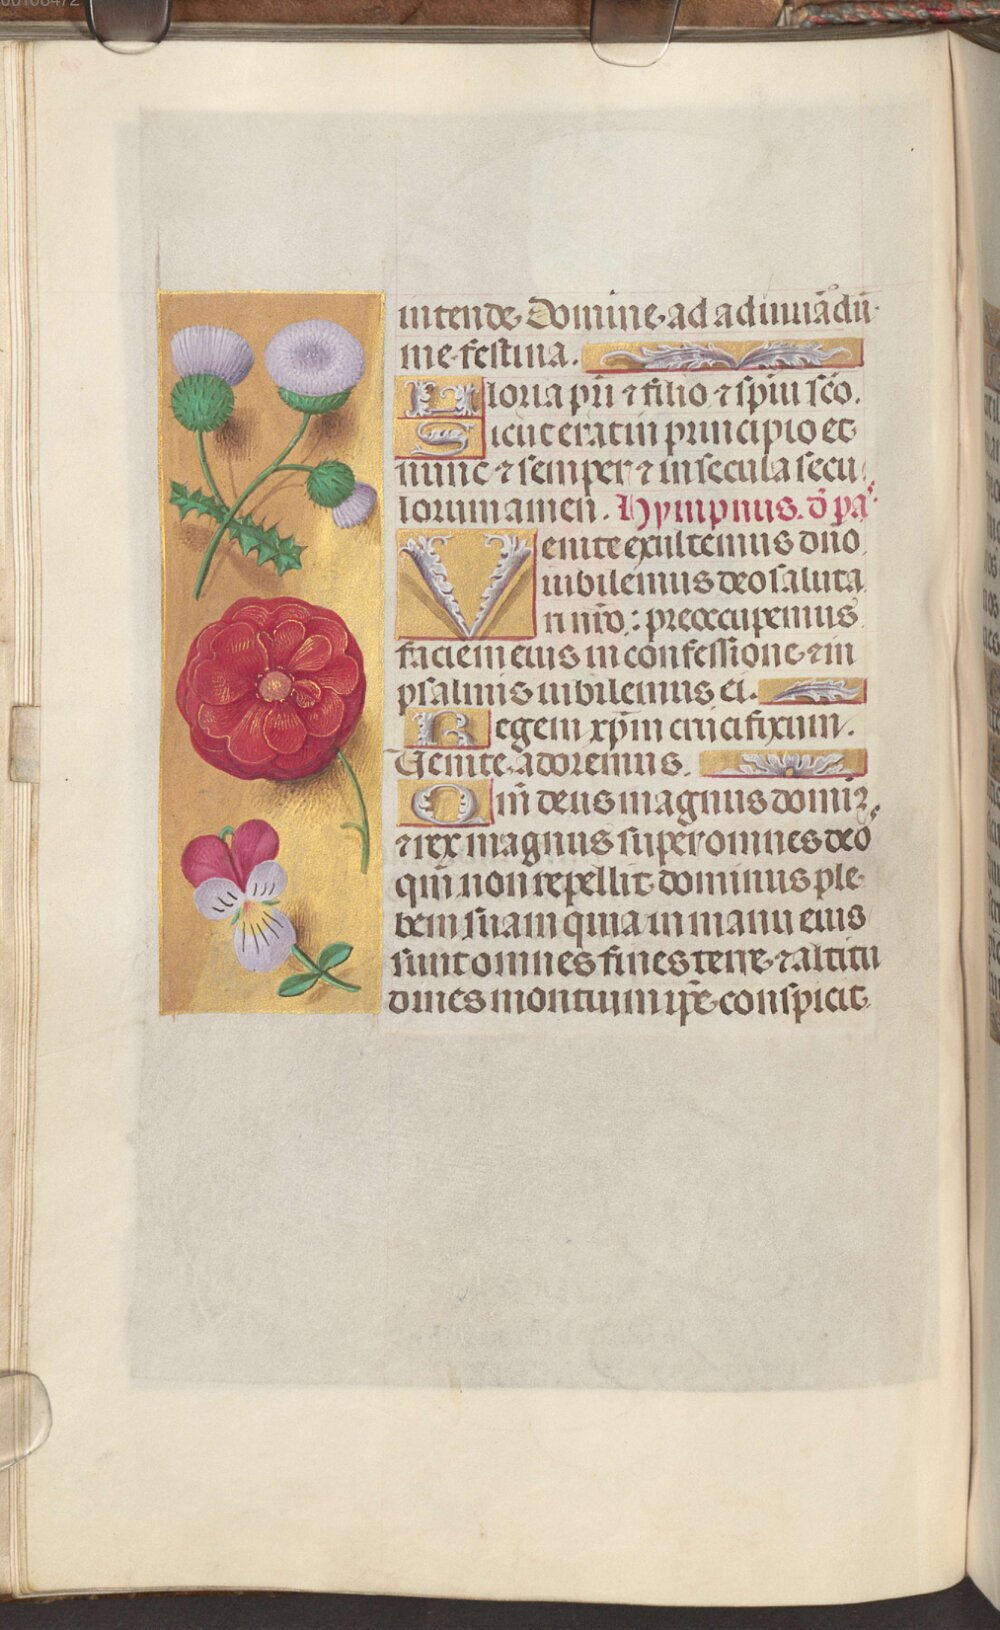 intende. Domine. ad adiuuādū.
me festina.
Gloria pr̄i ⁊ filio ⁊ spiu sc̄o.
Sicut erat in principio et
nunc ⁊ semper ⁊ in secula secu
lorum amen. Hympnus. d̄ pa.
Venite exultemus dn̄o
iubilemus deo saluta
ri nr̄o: preoccupemus
faciem eius in confessione ⁊ in
psalmis iubilemus ei.
Regem xp̄m crucifixum.
Venite adoremus.
Qm̄ deus magnus domi2
⁊ rex magnus super omnes deo
qm̄ non repellit dominus ple
bem suam quia in manu eius
sunt omnes fines terre ⁊ altitu
dines montium ip̄e conspicit.